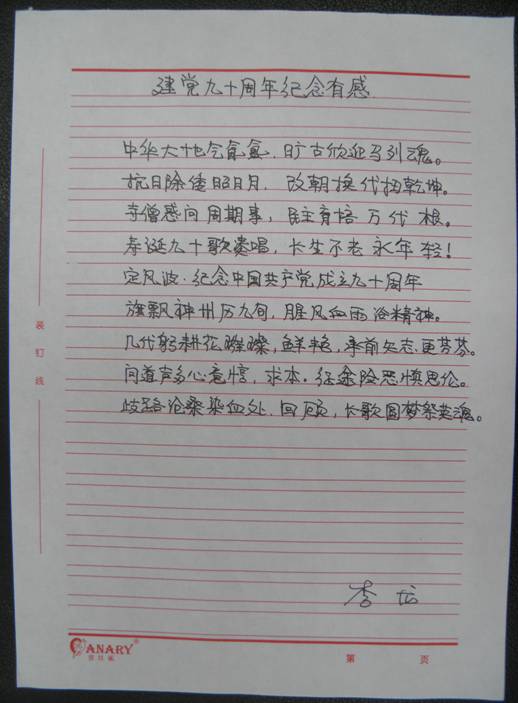 建党九十周年纪念有感
中华大地气氤氲，旷古欣迎马列魂。
抗日除倭昭日月，改朝换代扭乾坤。
寺僧感问周期事，民主育培万代根。
寿诞九十歌衷唱，长生不老永年轻！
定风波·纪念中国共产党成立九十周年
旗飘神州历九旬，腥风血雨浴精神。
几代躬耕花璀璨，鲜艳，承前矢志更芬芳。
问道声多心意惇，求本，征途险恶慎思伦。
歧路沧桑染血处，回顾，长歌圆梦祭英魂。
李
装
订
线
CANARY®
第 页